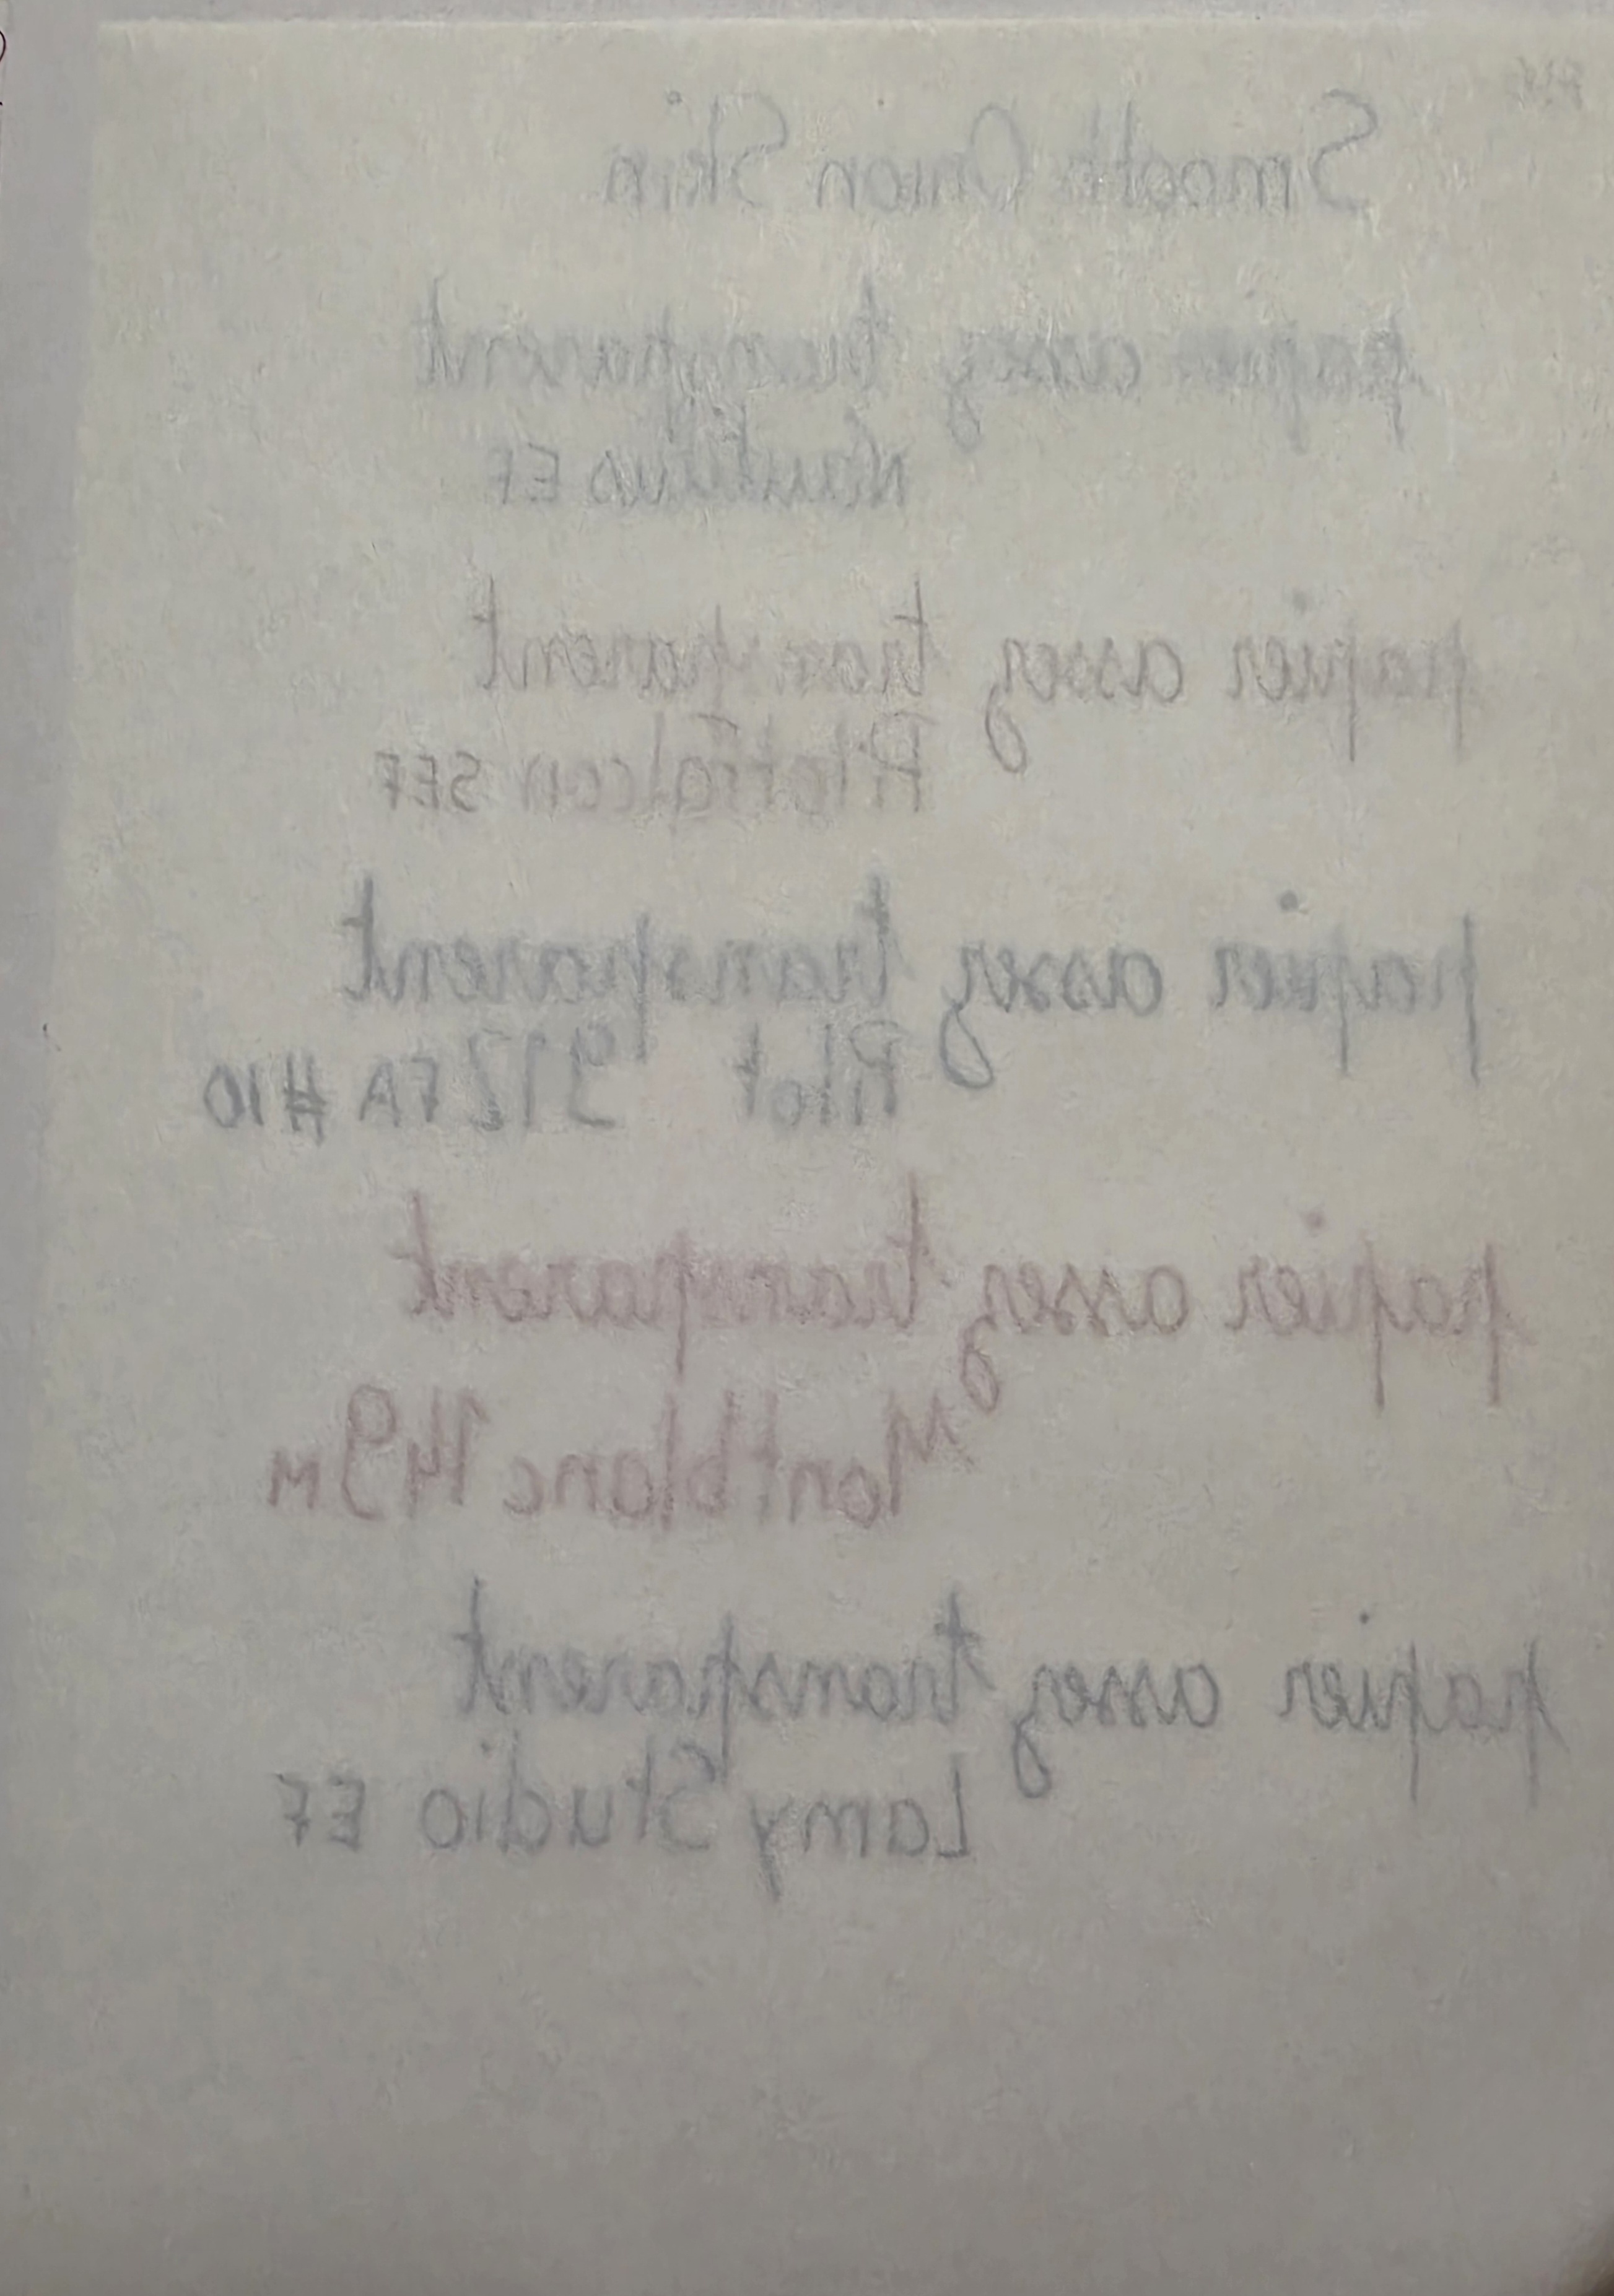 Smooth Onion Skin
papier assez transparent
Nautilus EF
papier assez transparent
Pilot Falcon SEF
papier assez transparent
Pilot 912 FA #10
papier assez transparent
Montblanc 149 M
papier assez transparent
Lamy Studio EF